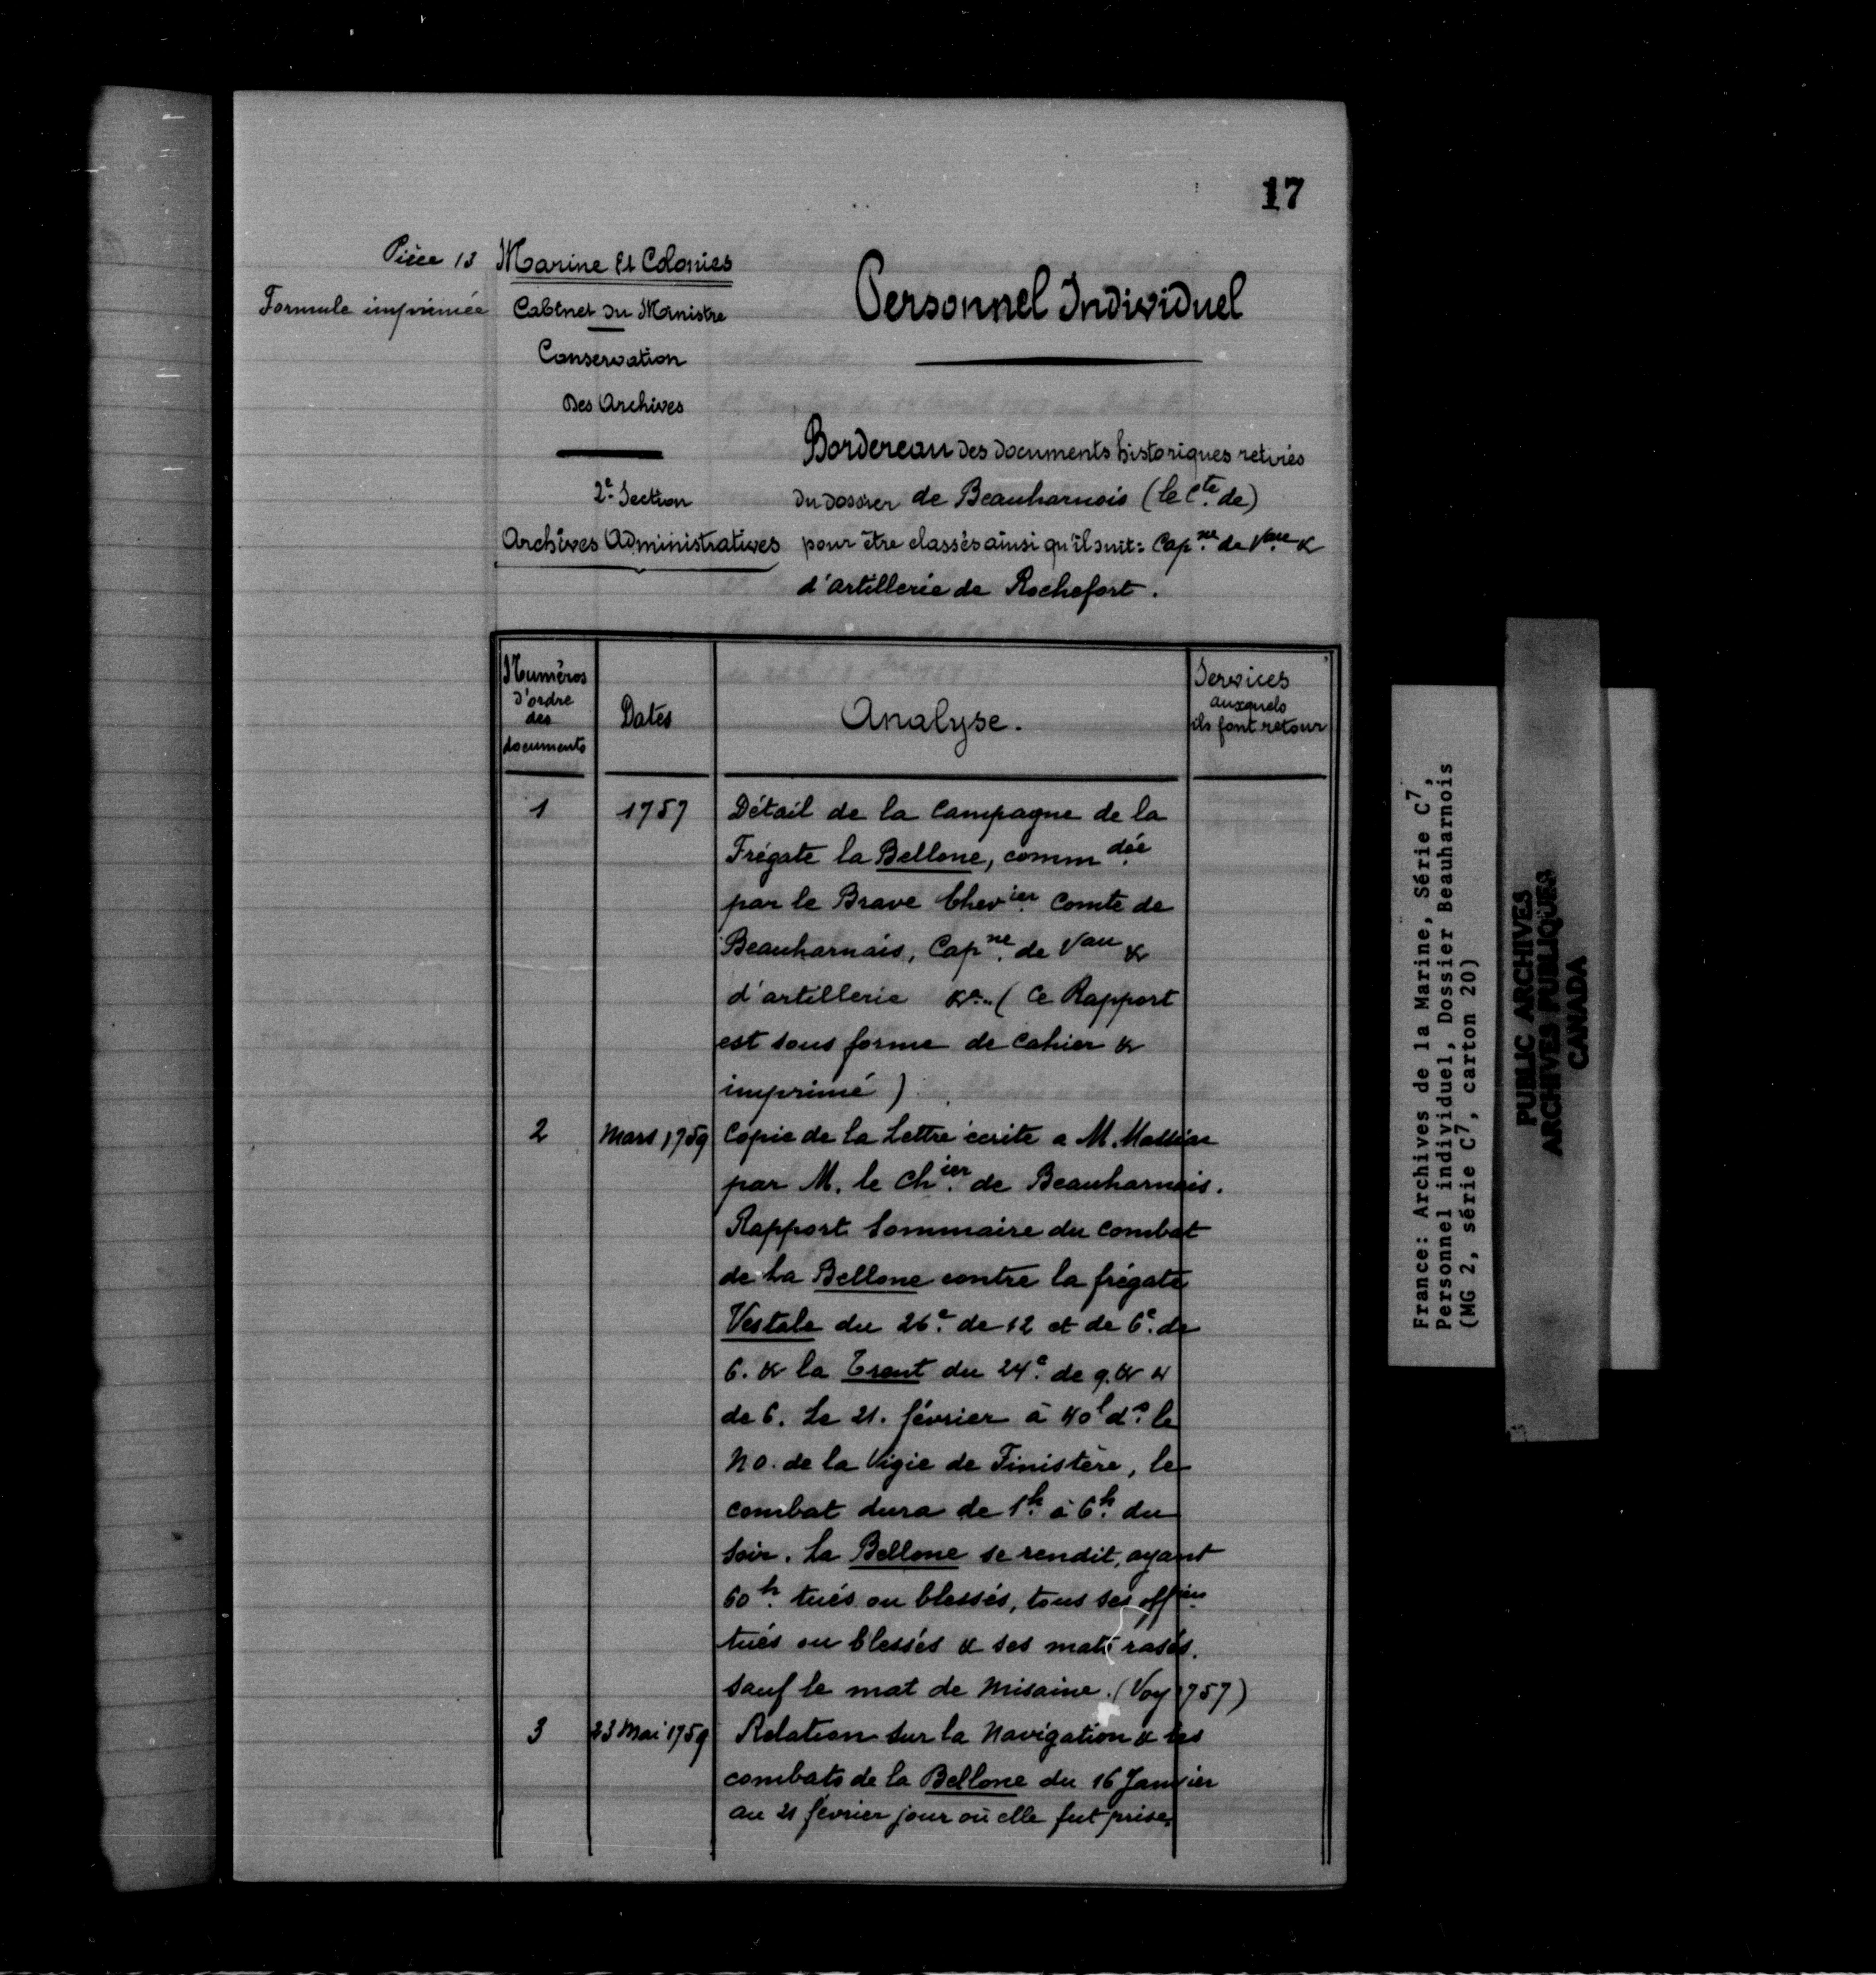 17
Pièce 13
Formule imprimée
Marine Et Colonies
Cabinet du Ministre
Conservation
Des Archives
2e. Section
Archives Administratives
Personnel Individuel
Bordereau des documents historiques retirés
du dossier de Beauharnois (le Cte. de)
pour être classés ainsi qu'il suit: Capne. de Vau &
d'artillerie de Rochefort.
Numéros
d'ordre
des
documents
Dates
Analyse.
Services
auxquels
ils font retour
1
1757
Détail de la Campagne de la
Frégate la Bellone, commdée
par le Brave Chevier. Comte de
Beauharnais, Capne. de Vau &
d'artillerie &a.. (Ce Rapport
est sous forme de Cahier &
imprimé)
2
Mars 1759
Copie de la Lettre écrite a M. Massiac
par M. le Chier. de Beauharnais.
Rapport Sommaire du combat
de La Bellone contre la frégate
Vestale du 26c. de 12 et de 6c. de
6. & la Trent du 24c. de 9. & 4
de 6. Le 21. février à 40l ds. le
NO. de la Vigie de Finistère, le
combat dura de 1h. à 6h. du
soir. La Bellone se rendit, ayant
60h. tués ou blessés, tous ses offiers
tués ou blessés & ses mats rasés.
sauf le mat de Misaine. (Voy 1757)
3
23 Mai 1759
Relation sur la Navigation & les
combats de la Bellone du 16 Janvier
au 21 février jour où elle fut prise,
France: Archives de la Marine, Série C7,
Personnel individuel, Dossier Beauharnois
(MG 2, série C7, carton 20)
PUBLIC ARCHIVES
ARCHIVES PUBLIQUES
CANADA